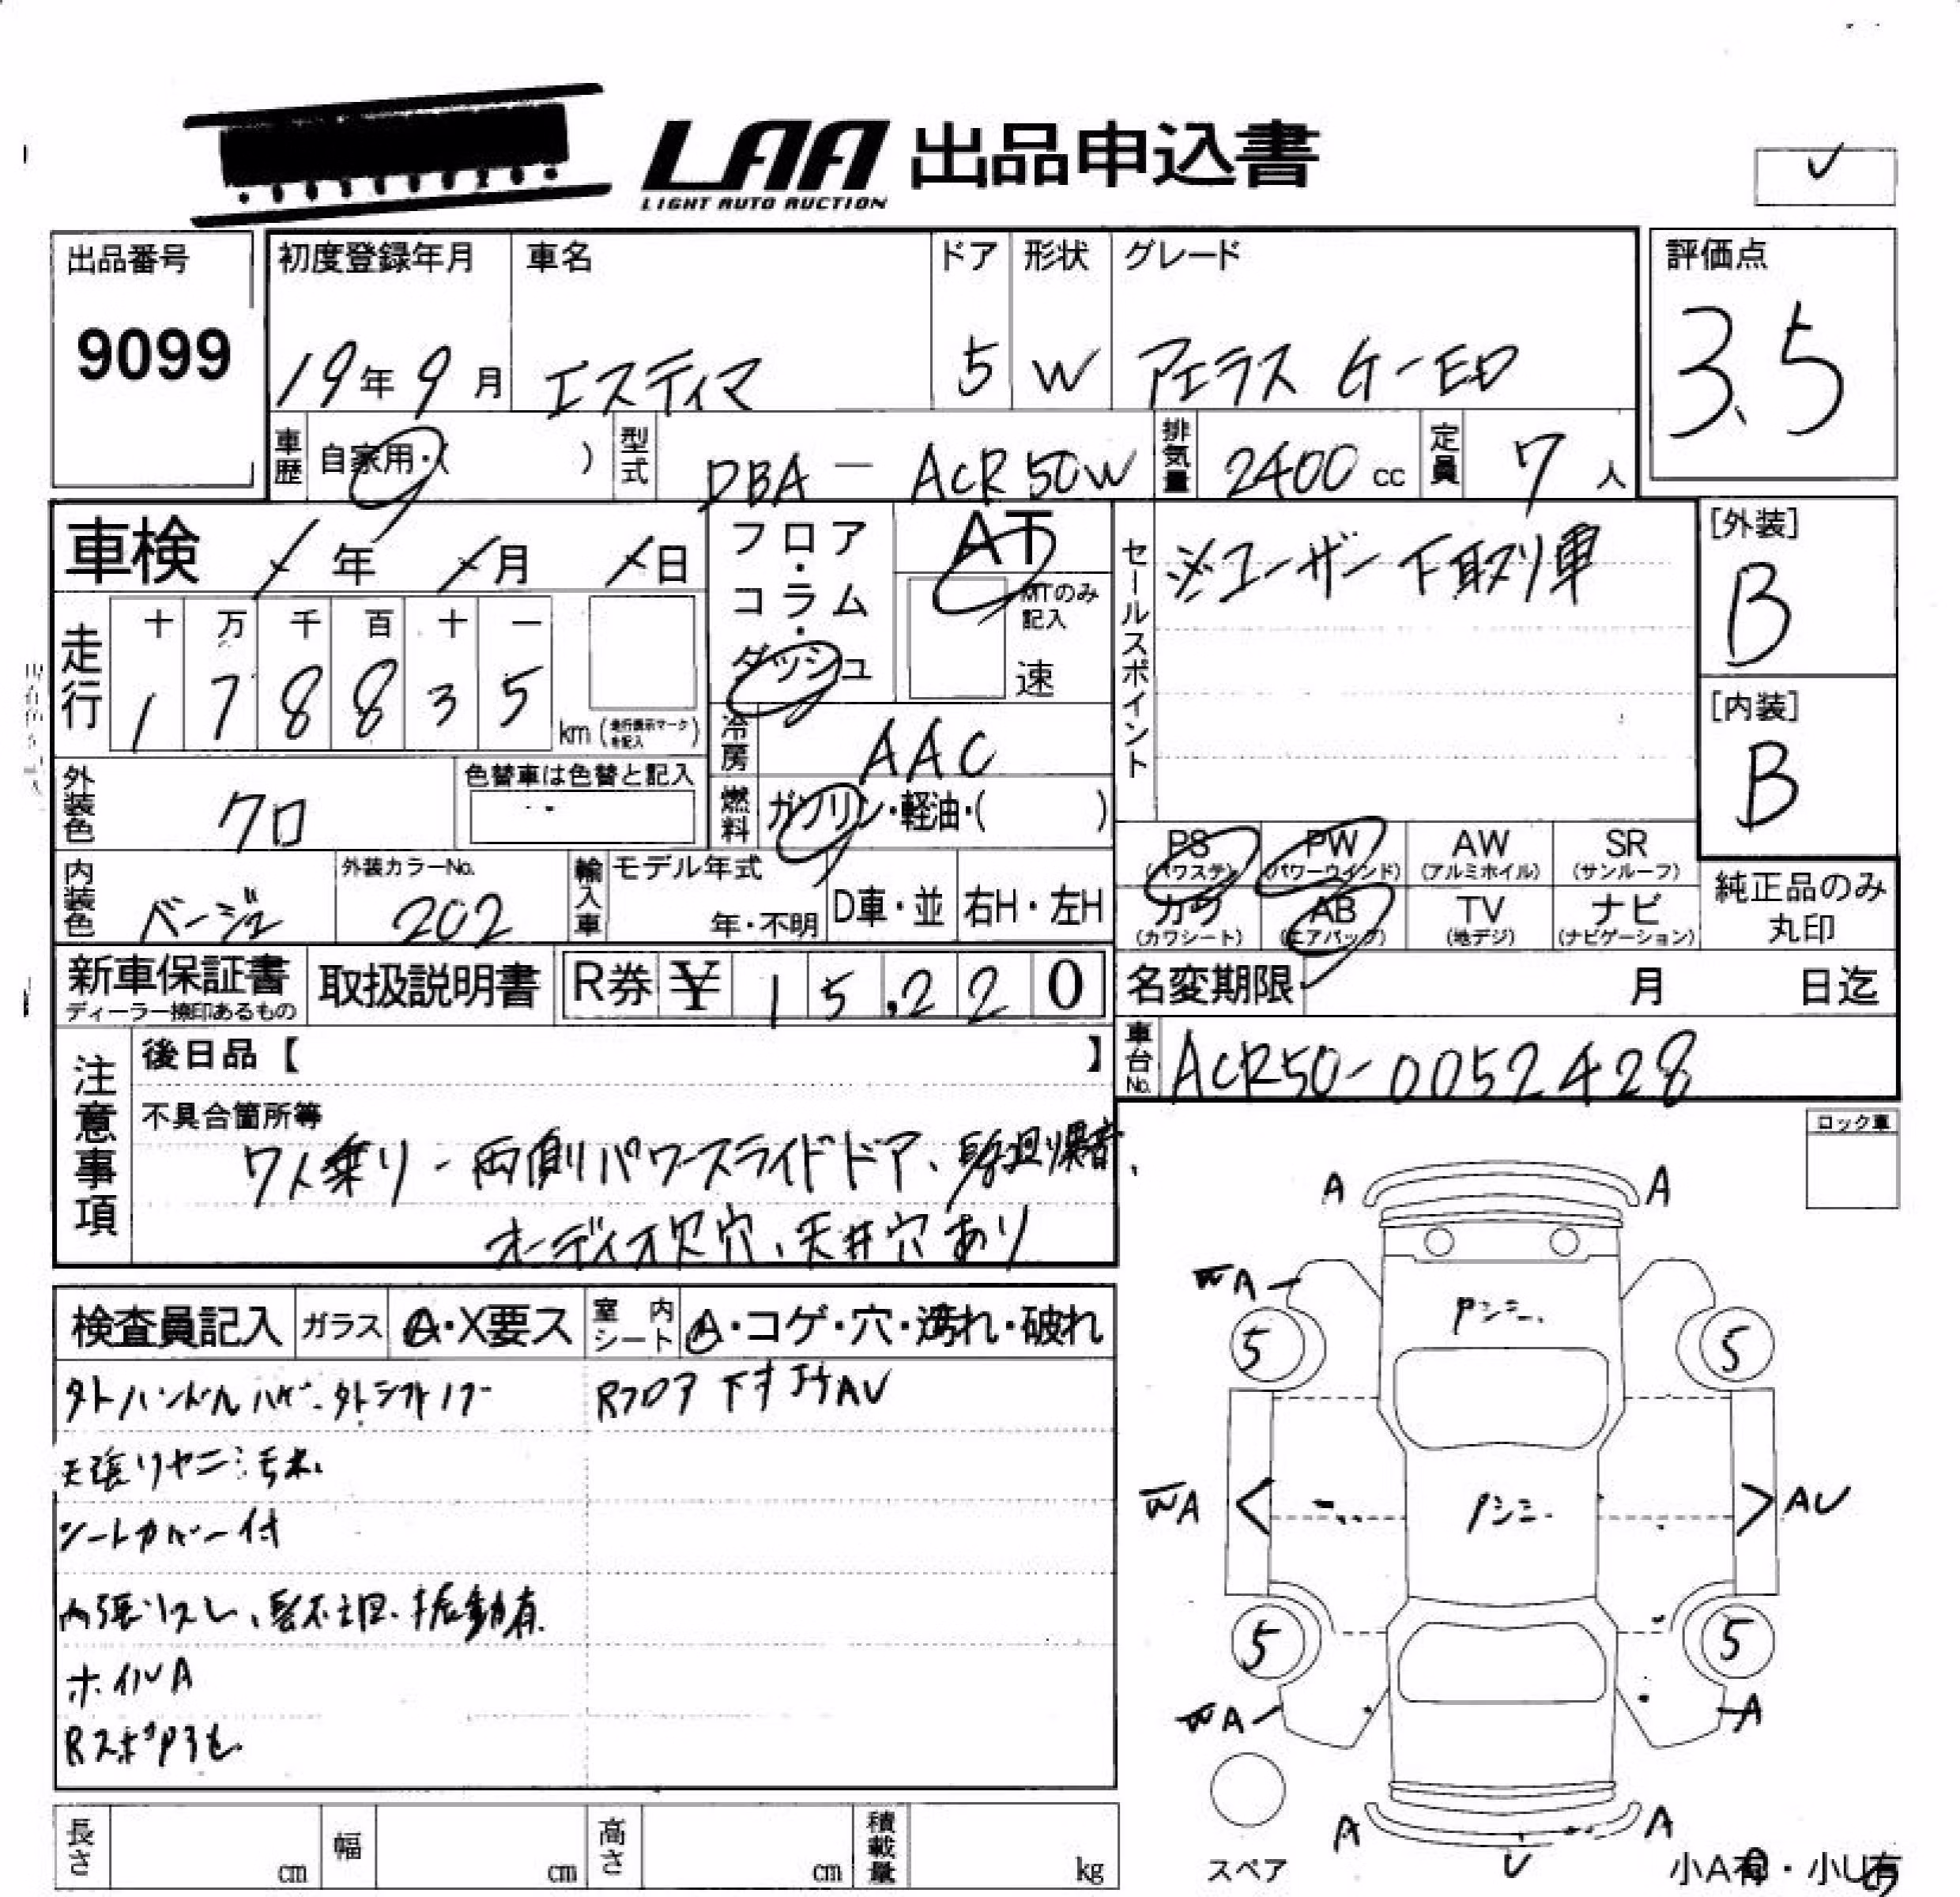 LAA 出品申込書
LIGHT AUTO AUCTION
出品番号
9099
初度登録年月
19年9月
車名
エスティマ
ドア
5
形状
W
グレード
アエラス G-ED
評価点
3.5
車歴 自家用・( )
型式 DBA — ACR50W
排気量 2400 cc
定員 7 人
車検 / 年 / 月 / 日
走行
十 万 千 百 十 一
1 7 8 8 3 5 km (走行表示マークを記入)
フロア・コラム・ダッシュ
AT
MTのみ記入
速
冷房 AAC
燃料 ガソリン・軽油・( )
セールスポイント
※ユーザー下取り車
[外装]
B
[内装]
B
外装色 クロ
色替車は色替と記入
内装色 ベージュ
外装カラーNo.
202
輸入車 モデル年式
年・不明
D車・並 右H・左H
PS (パワステ) PW (パワーウインド) AW (アルミホイル) SR (サンルーフ)
カワ (カワシート) AB (エアバッグ) TV (地デジ) ナビ (ナビゲーション)
純正品のみ丸印
新車保証書
ディーラー捺印あるもの
取扱説明書
R券 ¥ 15,220
名変期限 月 日迄
車台No. ACR50-0052428
注意事項
後日品【 】
不具合箇所等
7人乗り - 両側パワースライドドア、
オーディオ欠穴、天井穴あり
ロック車
検査員記入
ガラス A・X要ス
室内シート A・コゲ・穴・汚れ・破れ
外ハンドルハゲ、外シフトノブ
Rフロア下 AU
天張りヤニ汚れ
シートカバー付
内張りスレ、 振動有
ホイルA
A A
WA
Pシミ.
5 5
WA
Pシミ.
AU
5 5
WA
A
A A
U
スペア
小A有・小U有
長さ cm
幅 cm
高さ cm
積載量 kg